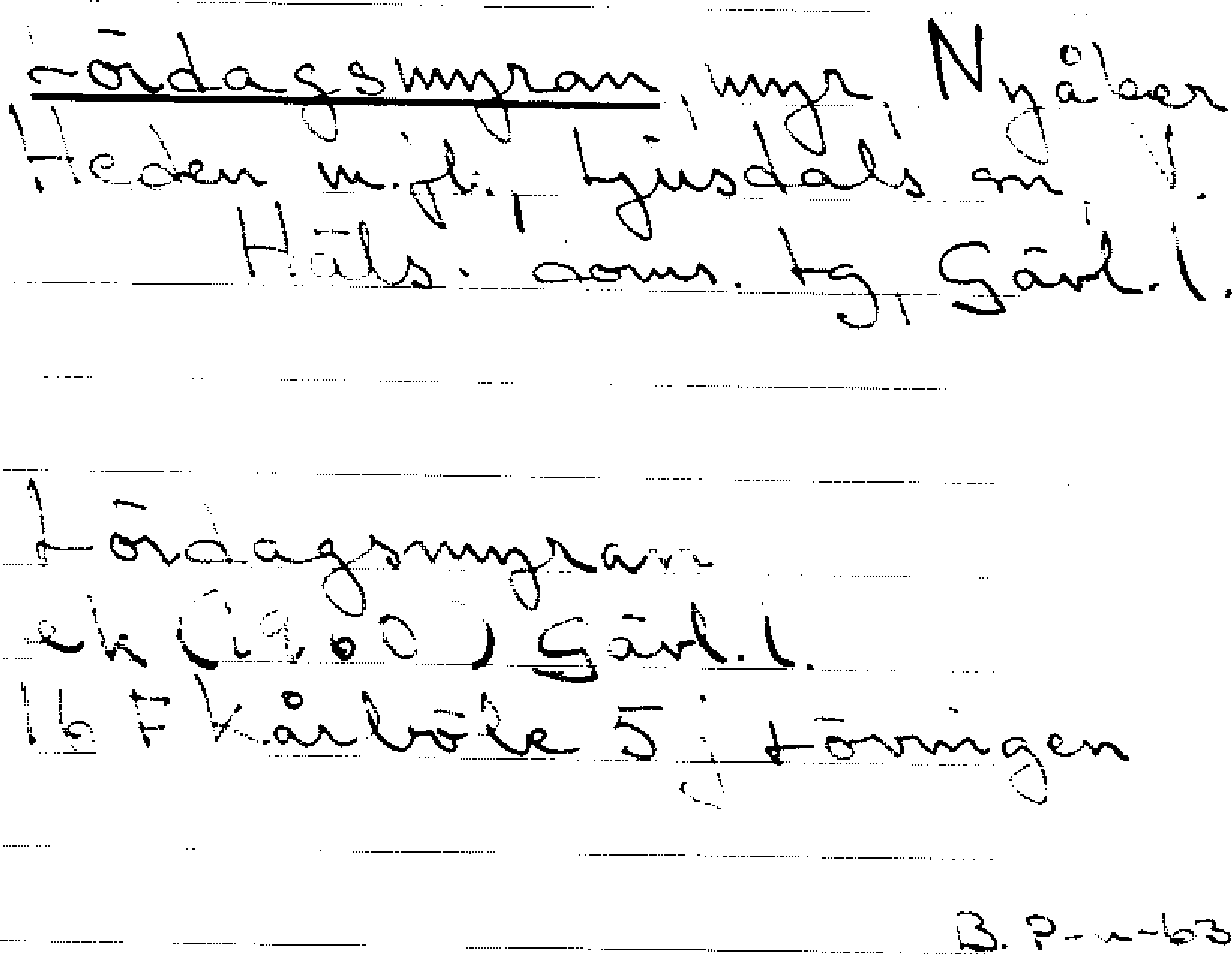 Lördagsmyran, myr, Nyåker
Heden m.fl., Ljusdals sn V.
Häls. doms. tg, Gävl. l.
Lördagsmyran
ek (1960) Gävl. l.
16 F Kårböle 5 j Lövingen
B. P-n-63